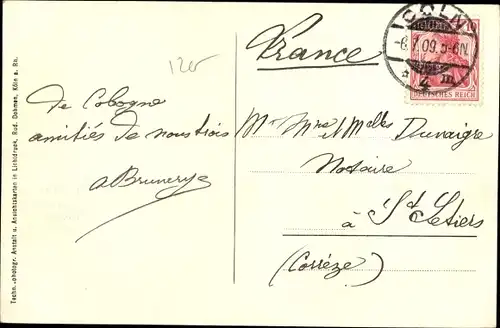 Techn.-photogr. Anstalt u. Ansichtskarten in Lichtdruck, Rud. Dohmen, Köln a. Rh.
12er
De Cologne
amitiés de nous trois
ABrunerye
France
CÖLN
-6.7.09.5-6N.
* 4 m
10
DEUTSCHES REICH
Mr Mme & Melles Duvaigre
Notaire
à St Setiers
(Corrèze)